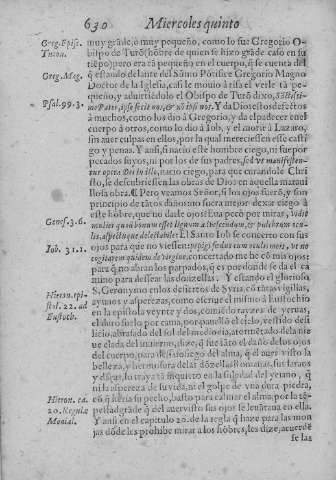 630 Miercoles quinto
Greg. Episc. Turon.
Greg. Mag.
Psal. 99. 3.
Genes. 3. 6.
Iob. 31. 1.
Hieron. epistol. 22. ad Eustoch.
Hieron. ca. 20. Regulæ Monial.
muy grãde, ò muy pequeño, como lo fue Gregorio Obispo
de Turõ (hõbre de quien se hizo grãde caso en su
tiẽpo) pero era tã pequeño en el cuerpo, q̃ se cuenta del
q̃ estando delante del Sũmo Põtifice Gregorio Magno
Doctor de la Iglesia, casi le mouio à risa el verle tã pequeño,
y aduirtiẽdolo el Obispo de Turõ dixo, Sãctissime
Pater, ipse fecit nos, & nõ ipsi nos. Y da Dios estos defectos
à muchos, como los dio à Gregorio, y da el padecer en el
cuerpo à otros, como lo dio à Iob, y el morir à Lazaro,
sin auer culpas en ellos, por la qual mereciessen esse castigo
y penas. Y aun, si nacio este hombre ciego, ni fue por
pecados suyos, ni por los de sus padres, sed vt manifestentur
opera Dei in illo, nacio ciego, para que curandole Christo,
se descubriessen las obras de Dios en aquella marauillosa
obra. Pero veamos Señor, si los ojos fuerõ, y son
principio de tãtos daños, no fuera mejor dexar ciego à
este hõbre, que no darle ojos? Eua pecò por mirar, vidit
mulier quòd bonum esset lignum ad vescendum, & pulchrum oculis,
aspectuque delectabile. El Santo Iob se concerto con sus
ojos para que no viessen: pepigi fœdus cum oculis meis, vt ne
cogitarem quidem de virgine, concertadome he cõ mis ojos
para q̃ no abran los parpados, q̃ es por donde se da el camino
para dessear las donzellas. Y estando el glorioso
S. Geronymo en los desiertos de Syria, cõ tãtas vigilias,
ayunos, y asperezas, como escriue el mismo à Eustochio
en la epistola veynte y dos, comiẽdo rayzes de yeruas,
el duro suelo por cama, por pauellõ el cielo, vestido desilicio,
abrasado del sol de medio dia, atormẽtado de la nieue
elada del inuierno, dize, q̃ sintio mas daño de los ojos
del cuerpo, para desasossiego del alma, q̃ el auer visto la
belleza, y hermosura delas dõzellas Romanas, sus saraos
y disque,
lo trayan tã inquieto en la soledad del yermo, q̃
ni la aspereza de su vida, ni el golpe de vna dura piedra,
cõ q̃ heria su pecho, basto para calmar el alma, por la tẽpestad
grãde q̃ del auer visto sus ojos se leuãtara en ella.
Y aun en el capitulo 20. de la regla q̃ haze para las monjas
dõde les prohibe mirar à los hõbres, les dize, acuerde
se las